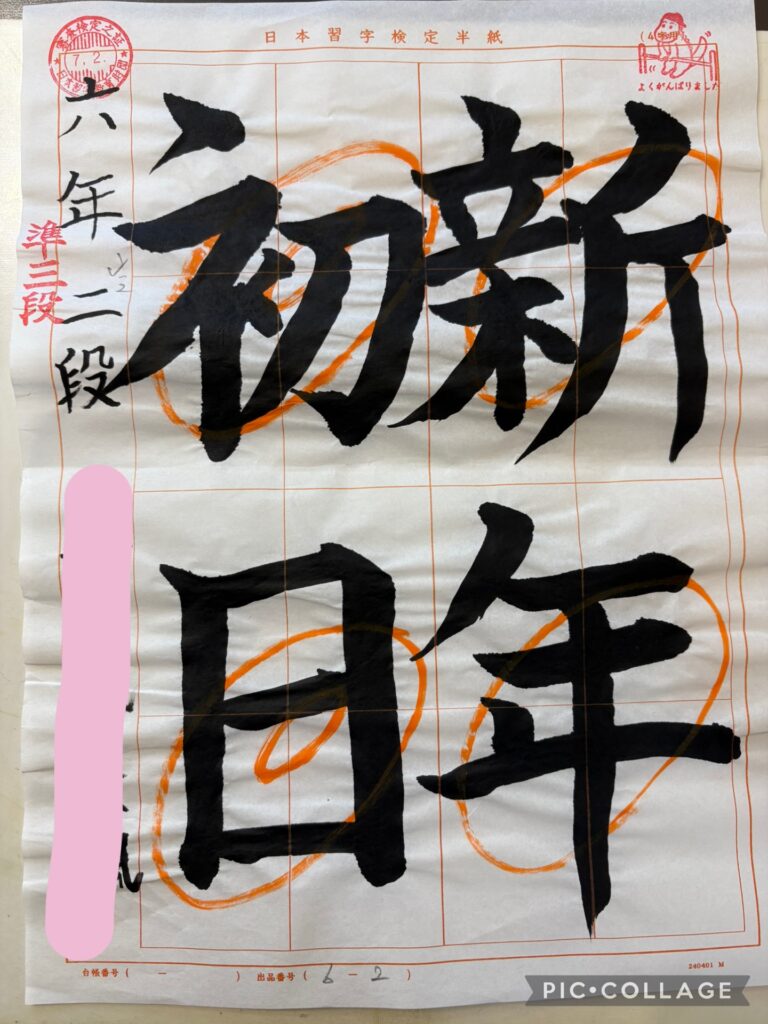 日本習字検定半紙
(4字用)
よくがんばりました
7.2.
新年
初日
六年二段
準三段
台帳番号( － )
出品番号( 6 － 2 )
240401 M
PIC•COLLAGE